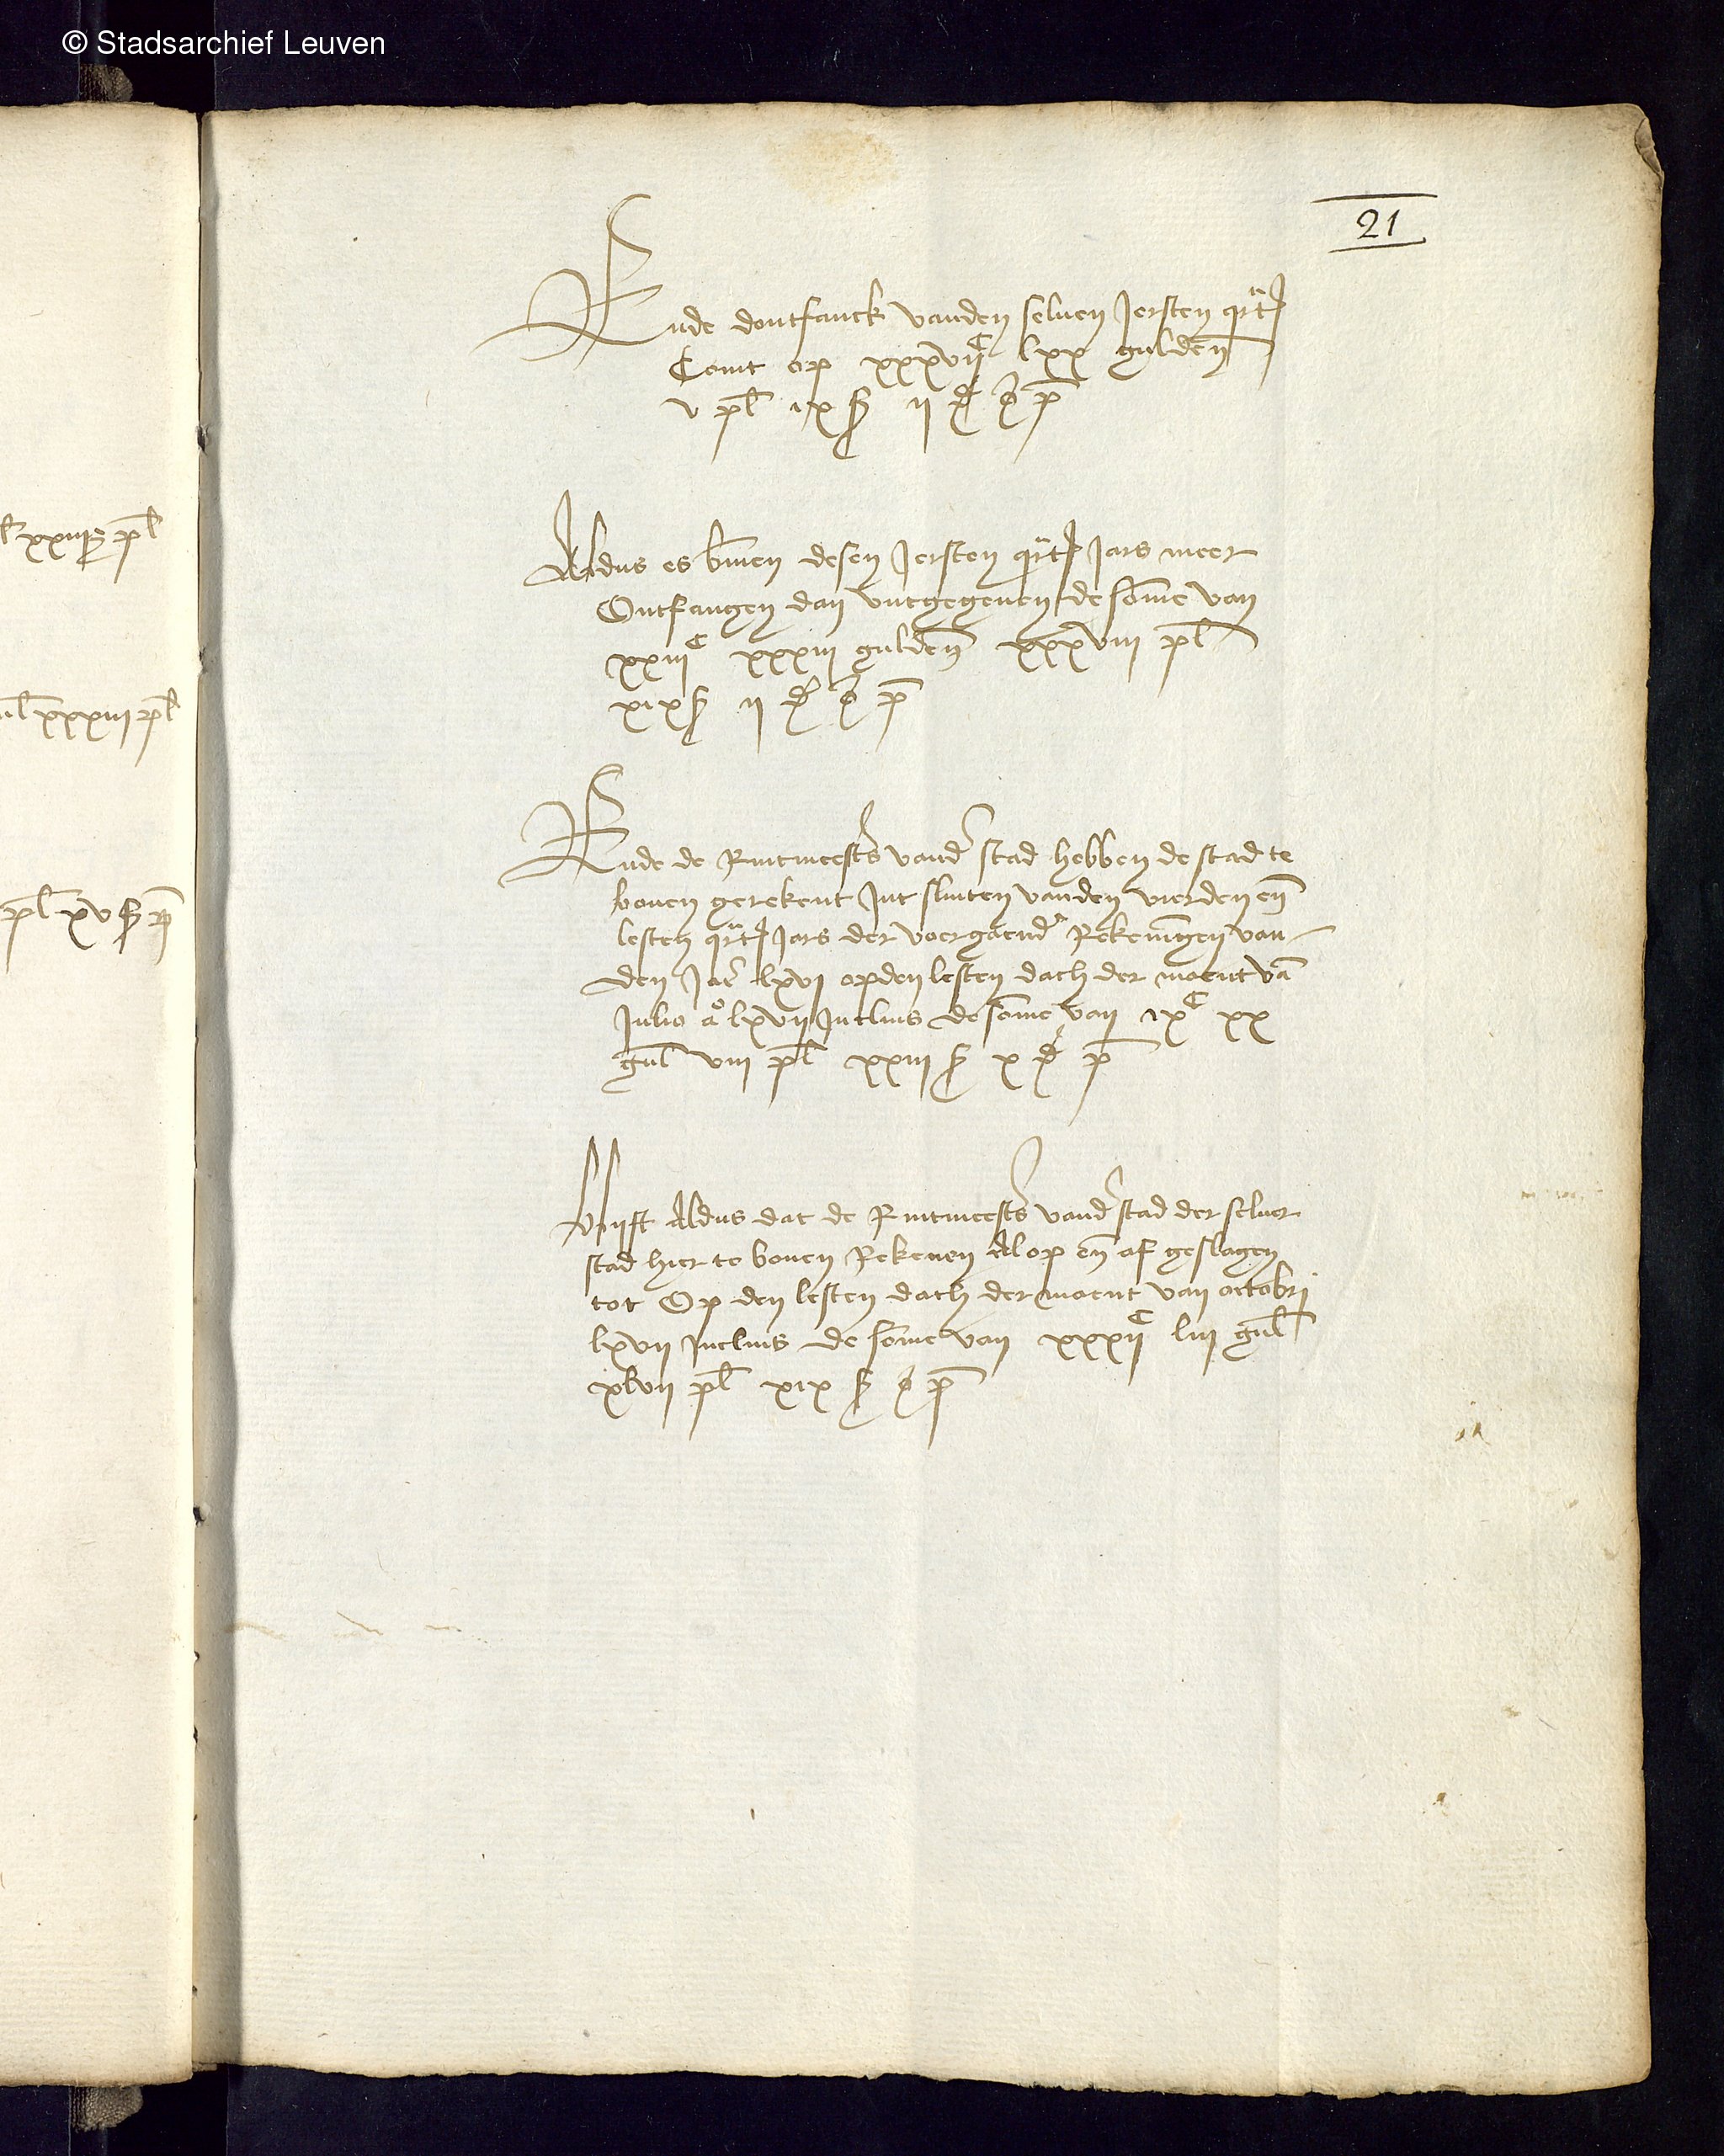 © Stadsarchief Leuven
21
Ende dontfanck vanden seluen Jersten qrt
Comt op xxxvijC lxx guldenen
v pl ix s ij d p
Aldus es binnen desen Jersten qrt Jars meer
Ontfangen dan vutgegeuen de some van
xxiijC xxxiij guldenen xxxviij pl
xix s ij d p
Ende de Rintmeesters vander stad hebben de stad te
bouen gerekent Int sluten vanden vierden en
lesten qrt Jars der voergaender Rekeningen van
den Jae lxvj opden lesten dach der maent va
Julio ao lxvij Incluis de some van ixC xx
gul viij pl xxiij s x d p
Blyft Aldus dat de Rintmeesters vander stad der seluer
stad hier te bouen Rekenen Al op en af geslagen
tot Op den lesten dach der maent van octobri
lxvij Incluis de some van xxxijC liij gul
xlvij pl xix s p
xxiij s pl
xxxiij pl
pl xv s p